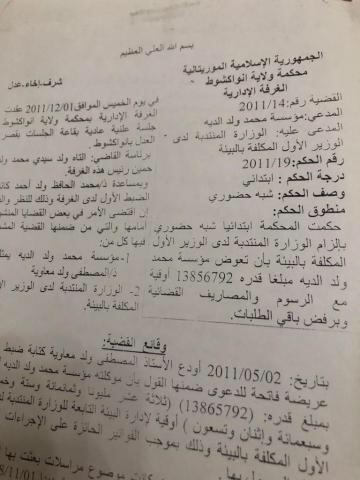 بسم الله العلي العظيم
الجمهورية الإسلامية الموريتانية
محكمة ولاية انواكشوط
الغرفة الإدارية
شرف-إخاء-عدل
القضية رقم:2011/14
المدعي:مؤسسة محمد ولد الديه
المدعى عليه: الوزارة المنتدبة لدى
الوزير الأول المكلفة بالبيئة
رقم الحكم:2011/19
درجة الحكم : ابتدائي
وصف الحكم: شبه حضوري
منطوق الحكم:
حكمت المحكمة ابتدائيا شبه حضوري
بإلزام الوزارة المنتدبة لدى الوزير الأول
المكلفة بالبيئة بأن تعوض مؤسسة محمد
ولد الديه مبلغا قدره 13856792 أوقية
مع الرسوم والمصاريف القضائية
وبرفض باقي الطلبات.
في يوم الخميس الموافق2011/12/01 عقدت
الغرفة الإدارية بمحكمة ولاية انواكشوط
جلسة علنية عادية بقاعة الجلسات بقصر
العدل بانواكشوط.
برئاسة القاضي: التاه ولد سيدي محمد ولد
حمين رئيس هذه الغرفة.
وبمساعدة ذ/محمد الحافظ ولد أحمد كاتب
الضبط الأول لدى الغرفة وذلك للنظر
إن اقتضى الأمر في بعض القضايا
أمامها والتي من ضمنها القضية
فيها كل من:
1-مؤسسة محمد ولد الديه
ذ/المصطفى ولد معاوية
2- الوزارة المنتدبة لدى الوزير
المكلفة بالبيئة.
وقائع القضية:
بتاريخ: 2011/05/02 أودع الأستاذ المصطفى ولد معاوية كتابة ضبط
عريضة فاتحة للدعوى ضمنها القول بأن موكلته مؤسسة محمد ولد
بمبلغ قدره: (13865792) (ثلاثة عشر مليونا وثمانمائة وستة
وسبعمائة وإثنان وتسعون ) أوقية لإدارة البيئة التابعة للوزارة المنتدبة
الأول المكلفة بالبيئة وذلك بموجب الفواتير الحائزة على الإجراءات
موضوع مراسلات بعثت بها